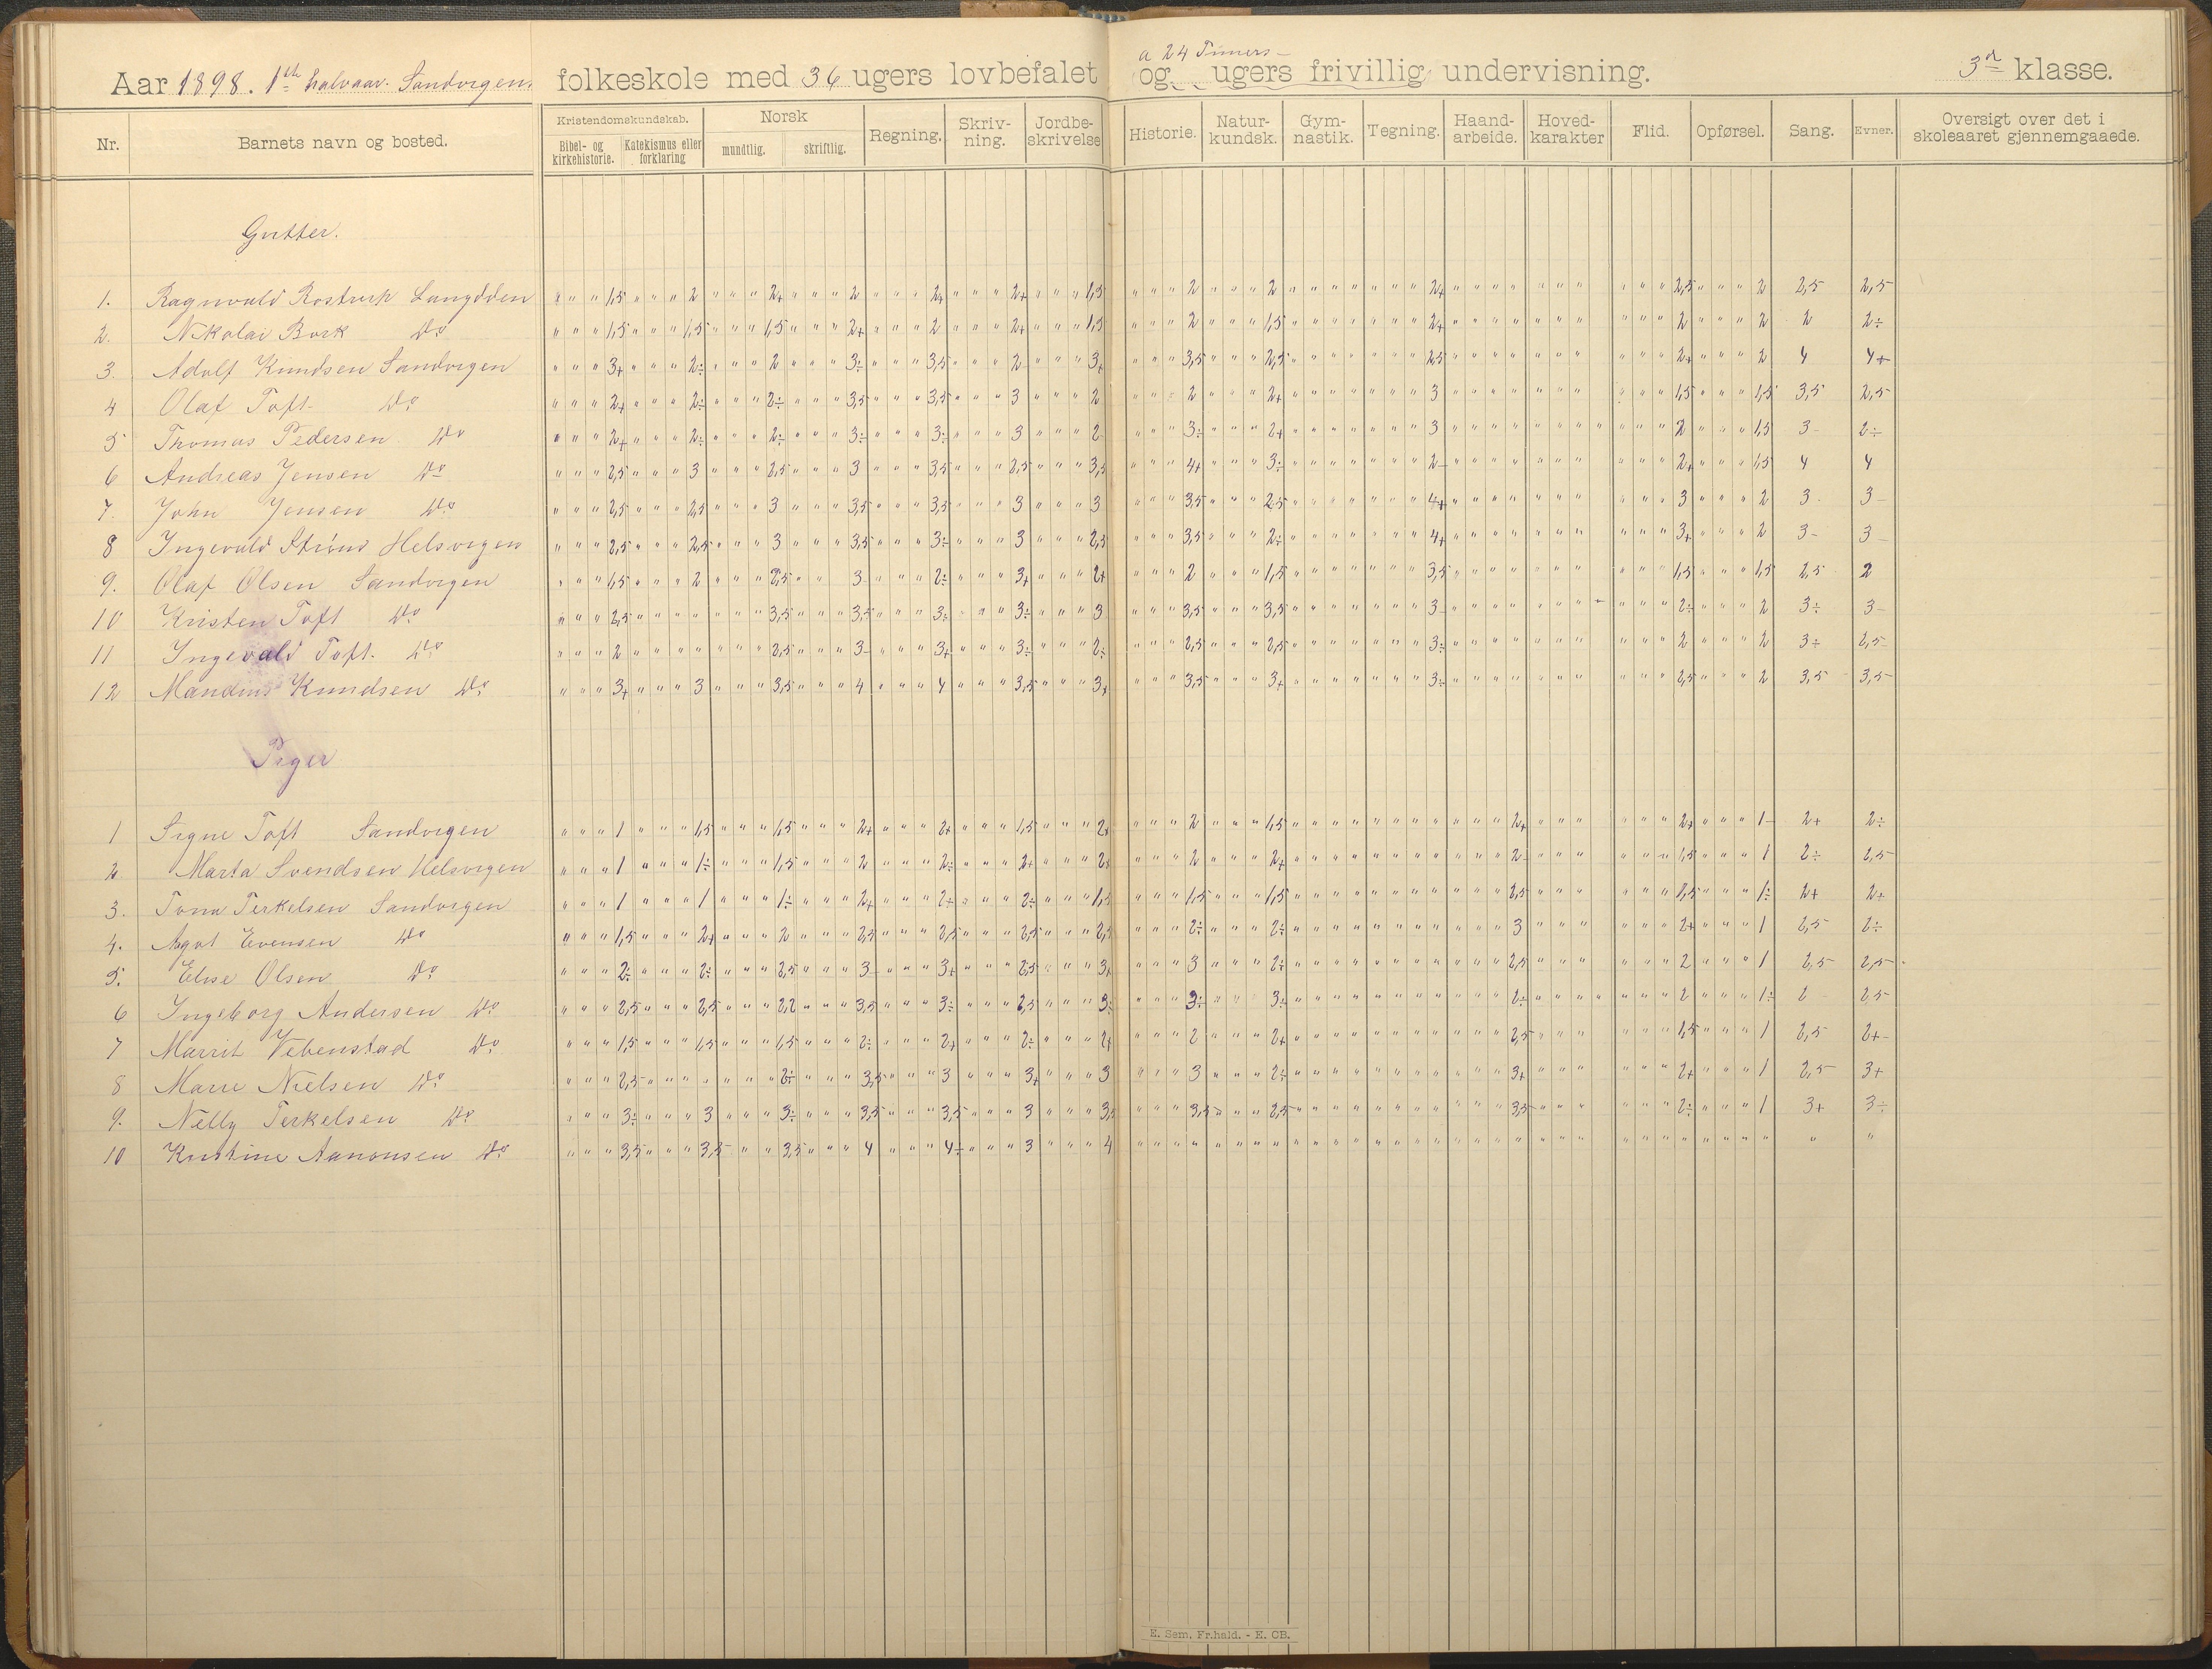 a 24 Timers
Aar 1898. 1ste halvaar. Sandvigens folkeskole med 36 ugers lovbefalet og ugers frivillig undervisning. 3die klasse.
Nr. Barnets navn og bosted. Kristendomskundskab. Bibel- og kirkehistorie. Katekismus eller forklaring Norsk mundtlig. skriftlig. Regning. Skriv-ning. Jordbe-skrivelse Historie. Natur-kundsk. Gym-nastik. Tegning. Haand-arbeide. Hoved-karakter Flid. Opførsel. Sang. Evner. Oversigt over det i skoleaaret gjennemgaaede.
Gutter.
1. Ragnvald Rostrup Langodden " " " 1,5 " " " 2 " " " 2+ " " " 2 " " " 2+ " " " 2+ " " " 1,5 " " " 2 " " " 2 " " " " " " " 2+ " " " " " " " " " " 2,5 " " " 2 2,5 2,5
2. Nikolai Bork Do " " " 1,5 " " " 1,5 " " " 1,5 " " " 2+ " " " 2 " " " 2+ " " " 1,5 " " " 2 " " " 1,5 " " " " " " " 2+ " " " " " " " " " " 2 " " " 2 2 2÷
3. Adolf Knudsen Sandvigen " " " 3+ " " " 2÷ " " " 2 " " " 3÷ " " " 3,5 " " " 2 " " " 3+ " " " 3,5 " " " 2,5 " " " " " " " 2,5 " " " " " " " " " " 2+ " " " 2 4 4+
4 Olaf Toft Do " " " 2+ " " " 2÷ " " " 2÷ " " " 3,5 " " " 3,5 " " " 3 " " " 2 " " " 2 " " " 2+ " " " " " " " 3 " " " " " " " " " " 1,5 " " " 1,5 3,5 2,5
5 Thomas Pedersen Do " " " 2+ " " " 2÷ " " " 2÷ " " " 3÷ " " " 3÷ " " " 3 " " " 2 " " " 3÷ " " " 2+ " " " " " " " 3 " " " " " " " " " " " 2 " " " 1,5 3 2÷
6 Andreas Jensen Do " " " 2,5 " " " 3 " " " 2,5 " " " 3 " " " 3,5 " " " 2,5 " " " 3,5 " " " 4+ " " " 3÷ " " " " " " " 2 " " " " " " " " " " 2+ " " " 1,5 4 4
7. John Jensen Do " " " 2,5 " " " 2,5 " " " 3 " " " 3,5 " " " 3,5 " " " 3 " " " 3 " " " 3,5 " " " 2,5 " " " " " " " 4+ " " " " " " " " " " 3 " " " 2 3 3
8 Ingevald Strøm Helsvigen " " " 2,5 " " " 2,5 " " " 3 " " " 3,5 " " " 3÷ " " " 3 " " " 2,5 " " " 3,5 " " " 2÷ " " " " " " " 4+ " " " " " " " " " " 3+ " " " 2 3 3
9. Olaf Olsen Sandvigen " " " 1,5 " " " 2 " " " 2,5 " " 3 " " " 2÷ " " " 3+ " " " 2+ " " " 2 " " " 1,5 " " " " " " " 3,5 " " " " " " " " " " 1,5 " " " 1,5 2,5 2
10 Kristen Toft Do " " " 2,5 " " " " " " " 3,5 " " " 3,5 " " " 3÷ " " " 3÷ " " " 3 " " " 3,5 " " " 3,5 " " " " " " " 3 " " " " " " " " " " 2÷ " " " 2 3÷ 3
11 Ingevald Toft. Do " " " 2 " " " " " " " 2,5 " " " 3 " " " 3+ " " " 3÷ " " " 2÷ " " " 2,5 " " " 2,5 " " " " " " " 3÷ " " " " " " " " " " 2 " " " 2 3÷ 2,5
12 Mandius Knudsen Do " " " 3+ " " " 3 " " " 3,5 " " " 4 " " " 4 " " " 3,5 " " " 3+ " " " 3,5 " " " 3+ " " " " " " " 3÷ " " " " " " " " " " 2,5 " " " 2 3,5 3,5
Piger
1 Signe Toft Sandvigen " " " 1 " " " 1,5 " " " 1,5 " " " 2+ " " " 2+ " " " 1,5 " " " 2+ " " " 2 " " " 1,5 " " " " " " " " " " " 2+ " " " " " " 2+ " " " 1 2+ 2÷
2 Marta Svendsen Helsvigen " " " 1 " " " 1÷ " " " 1,5 " " " 2 " " " 2÷ " " " 2+ " " " 2+ " " " 2 " " " 2+ " " " " " " " " " " " 2 " " " " " " 1,5 " " " 1 2÷ 2,5
3. Tona Terkelsen Sandvigen " " " 1 " " " 1 " " " 1÷ " " " 2+ " " " 2+ " " " 2÷ " " " 1,5 " " " 1,5 " " " 1,5 " " " " " " " " " " " 2,5 " " " " " " 2,5 " " " 1÷ 2+ 2+
4. Agot Evensen Do " " " 1,5 " " " 2+ " " " 2 " " " 2,5 " " " 2,5 " " " 2,5 " " " 2,5 " " " 2÷ " " " 2÷ " " " " " " " " " " " 3 " " " " " " 2+ " " " 1 2,5 2÷
5. Elise Olsen Do " " " 2÷ " " " 2÷ " " " 2,5 " " " 3 " " " 3+ " " " 2,5 " " " 3+ " " " 3 " " " 2÷ " " " " " " " " " " " 2,5 " " " " " " 2 " " " 1 2,5 2,5
6 Ingeborg Andersen Do " " " 2,5 " " " 2,5 " " " 2,2 " " " 3,5 " " " 3÷ " " " 2,5 " " " 3÷ " " " 3÷ " " " 3÷ " " " " " " " " " " " 2÷ " " " " " " " 2 " " " 1÷ 2 2,5
7 Marrit Vebenstad Do " " " 1,5 " " " 1,5 " " " 1,5 " " " 2÷ " " " 2+ " " " 2÷ " " " 2+ " " " 2 " " " 2+ " " " " " " " " " " " 2,5 " " " " " " 1,5 " " " 1 2,5 2+
8 Marie Nielsen Do " " " 2,5 " " " " " " " 2÷ " " " 3,5 " " " 3 " " " 3+ " " " 3 " " " 3 " " " 2÷ " " " " " " " " " " " 3+ " " " " " " 2+ " " " 1 2,5 3+
9. Nelly Terkelsen Do " " " 3÷ " " " 3 " " " 3÷ " " " 3,5 " " " 3,5 " " " 3 " " " 3,5 " " " 3,5 " " " 2,5 " " " " " " " " " " " 3,5 " " " " " " 2÷ " " " 1 3+ 3÷
10 Kristine Aanonsen Do " " " 3,5 " " " 3,5 " " 3,5 " " " 4 " " " 4÷ " " " 3 " " " 4 " " " " " " " " " " " " " " " " " " " " " " " " " " " " " " " " " "
E. Sem, Fr.hald. - E. OB.